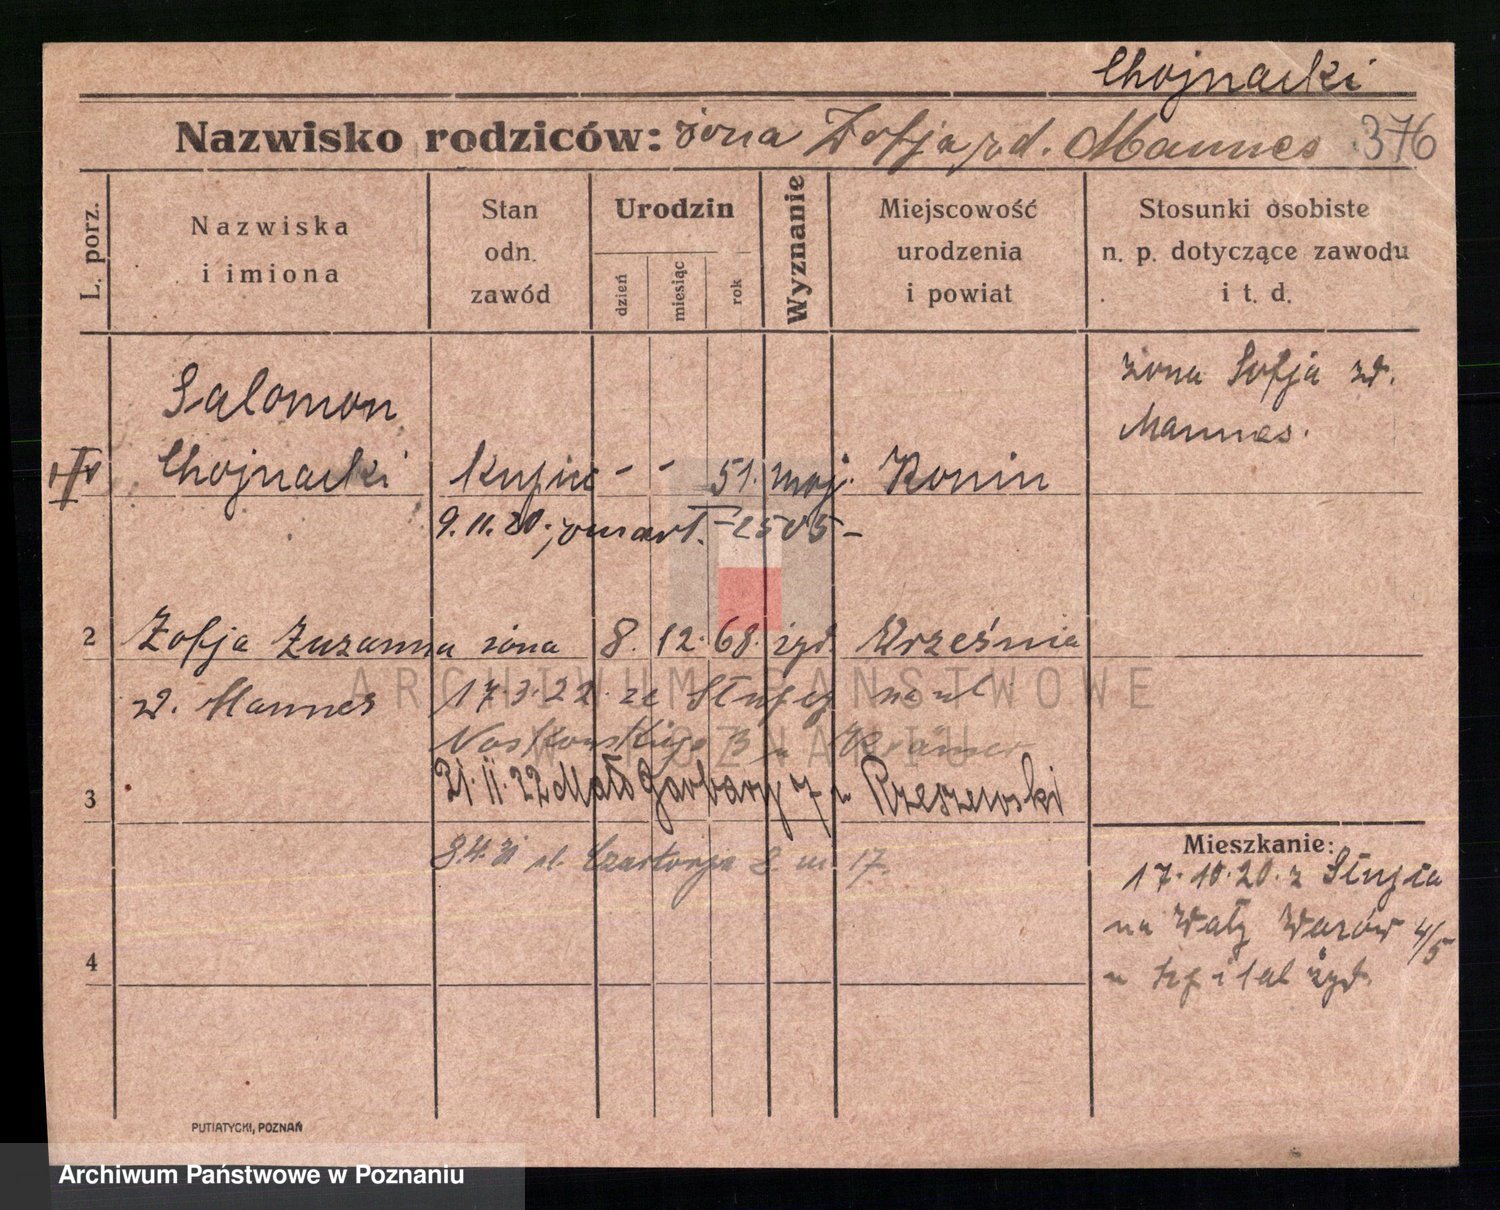 Chojnacki
Nazwisko rodziców: żona Zofja zd. Mannes 376
L. porz.
Nazwiska
i imiona
Stan
odn.
zawód
Urodzin
dzień
miesiąc
rok
Wyznanie
Miejscowość
urodzenia
i powiat
Stosunki osobiste
n. p. dotyczące zawodu
i t. d.
żona Sofja zd.
Mannes.
Salomon
Chojnacki kupiec - - 51. moj. Konin
9.11.20. umarł. - 2505 -
2 Zofja Zuzanna żona 8. 12. 68. żyd. Września
zd. Mannes 17.3.22 ze Słupcy na ul
Noskowskiego 3 u Krämer
3 21.II.22 Małe Garbary 7 u Rzeszewski
ul. Czartorja 8 m 17.
Mieszkanie:
17.10.20. z Słupca
na Wały Wazów 4/5
u szpital żyd.
4
PUTIATYCKI, POZNAŃ
ARCHIWUM PAŃSTWOWE
W POZNANIU
Archiwum Państwowe w Poznaniu